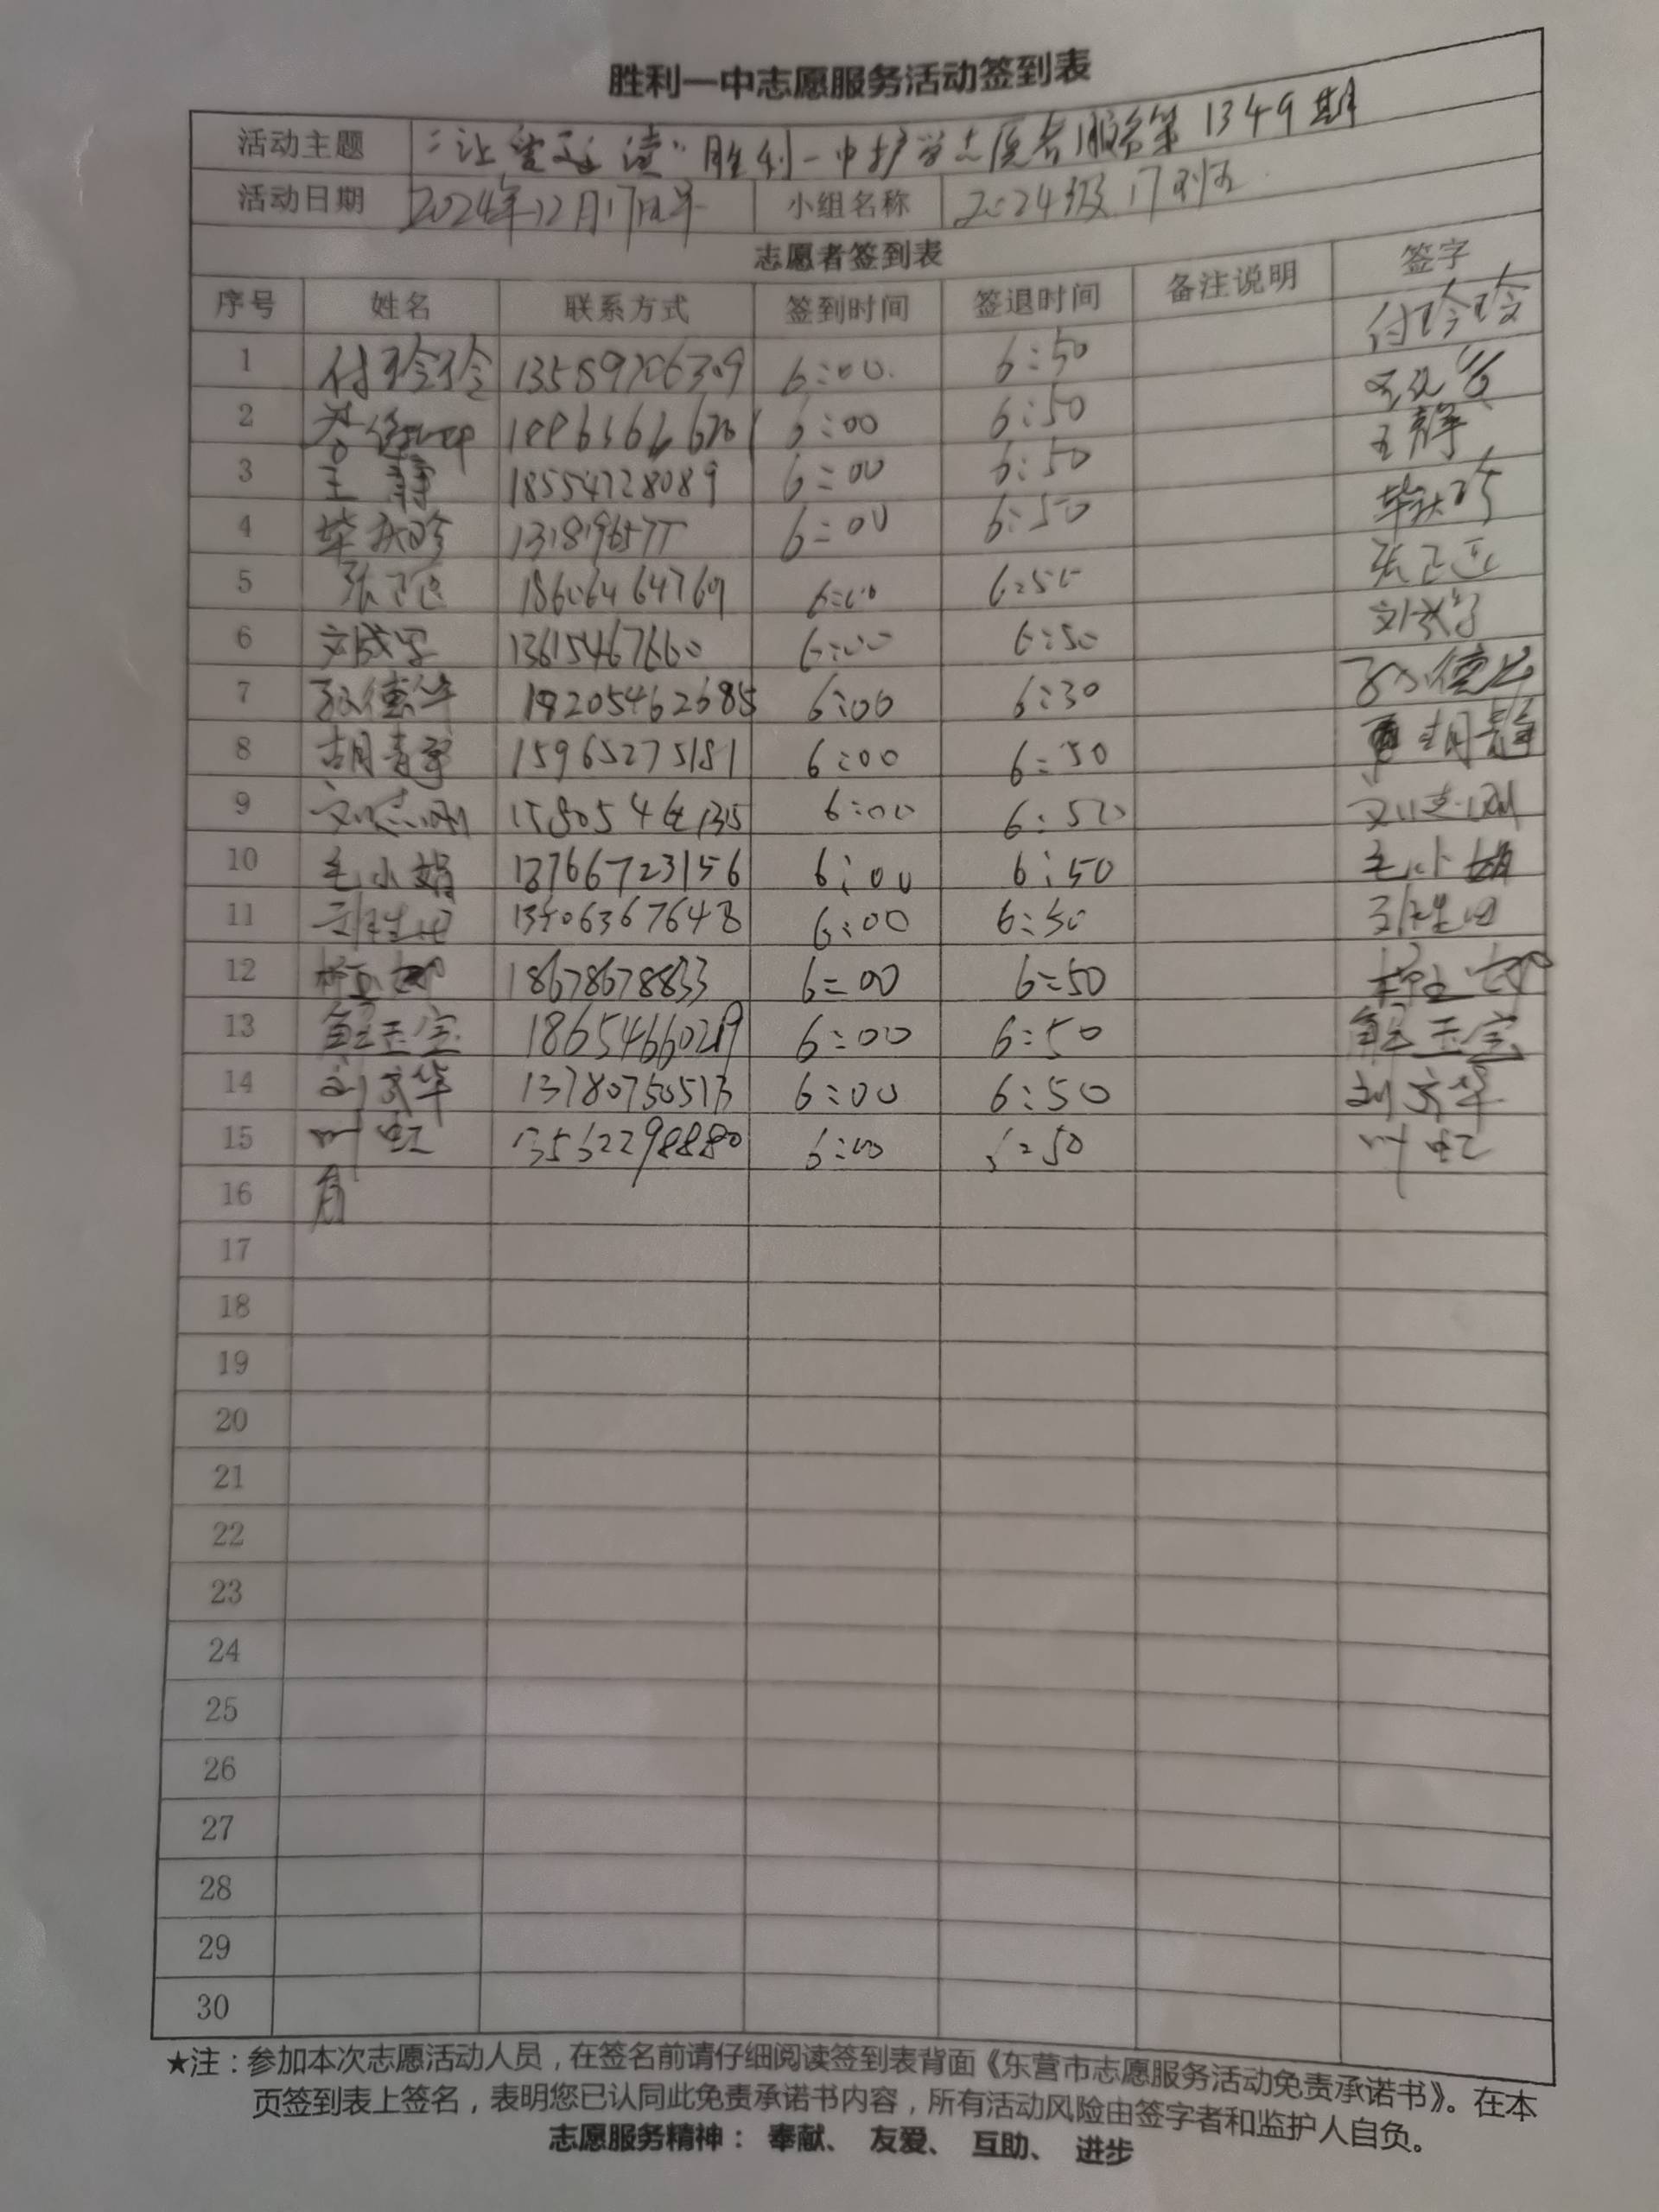 胜利一中志愿服务活动签到表
活动主题 胜利一中护学志愿者服务第1349期
活动日期 2024年12月17日 小组名称 2024级17
志愿者签到表 签字
序号 姓名 联系方式 签到时间 签退时间 备注说明
1 付玲玲 13589706309 6:00 6:50 付玲玲
2 6:00 6:50
3 王静 18554728089 6:00 6:50 王静
4 毕秋玲 6:00 6:50 毕秋玲
5 张正臣 18606464769 6:00 6:50 张正臣
6 刘成军 13615467660 6:00 6:50 刘成军
7 孙德华 18205462685 6:00 6:30 孙德华
8 胡青 15965275181 6:00 6:50 胡青
9 刘志刚 6:00 6:50 刘志刚
10 毛小娟 18766723156 6:00 6:50 毛小娟
11 13406367648 6:00 6:50
12 18678678833 6:00 6:50
13 解玉宝 6:00 6:50 解玉宝
14 刘文华 13780750513 6:00 6:50 刘文华
15 叶虹 13562298880 6:00 6:50 叶虹
16
17
18
19
20
21
22
23
24
25
26
27
28
29
30
★注：参加本次志愿活动人员，在签名前请仔细阅读签到表背面《东营市志愿服务活动免责承诺书》。在本
页签到表上签名，表明您已认同此免责承诺书内容，所有活动风险由签字者和监护人自负。
志愿服务精神： 奉献、 友爱、 互助、 进步